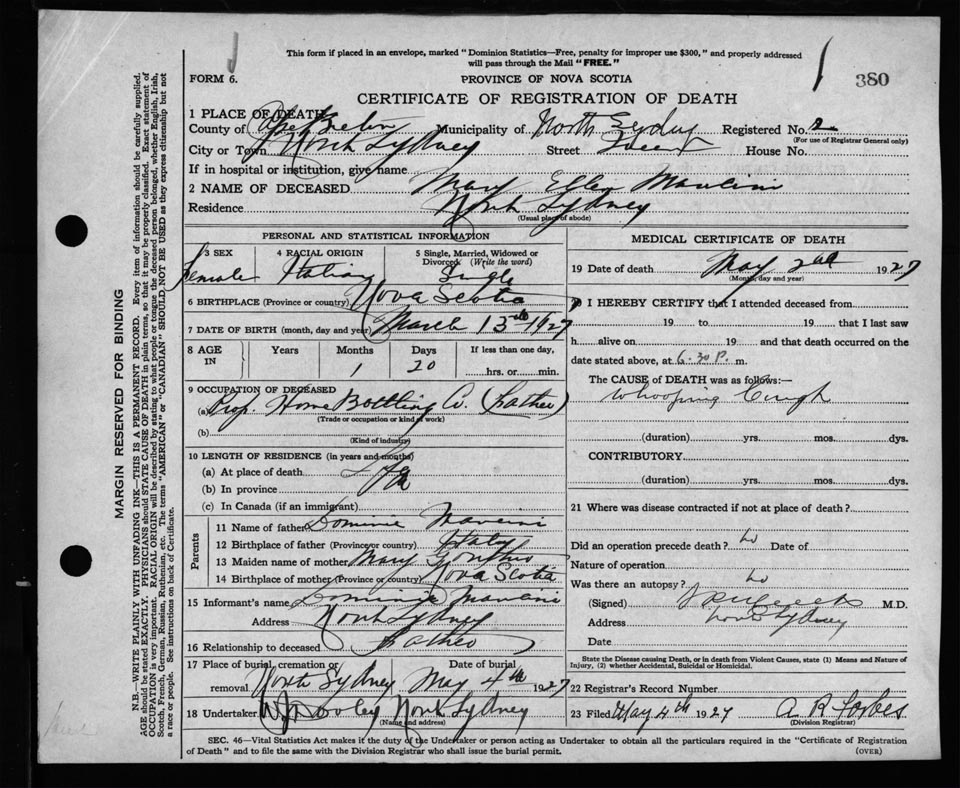 This form if placed in an envelope, marked "Dominion Statistics—Free, penalty for improper use $300," and properly addressed
will pass through the Mail "FREE."
FORM 6.
PROVINCE OF NOVA SCOTIA
380
CERTIFICATE OF REGISTRATION OF DEATH
1 PLACE OF DEATH
County of Cape Breton Municipality of North Sydney Registered No. 2
(For use of Registrar General only)
City or Town North Sydney Street House No.
If in hospital or institution, give name
2 NAME OF DECEASED Mary Ellen Mancini
Residence North Sydney
(Usual place of abode)
PERSONAL AND STATISTICAL INFORMATION
3 SEX 4 RACIAL ORIGIN 5 Single, Married, Widowed or Divorced (Write the word)
Female Italian Single
6 BIRTHPLACE (Province or country) Nova Scotia
7 DATE OF BIRTH (month, day and year) March 13th 1927
8 AGE IN Years Months Days If less than one day,
1 20 hrs. or min.
9 OCCUPATION OF DECEASED
(a) Prop. Home Bottling Co. (Father)
(Trade or occupation or kind of work)
(b)
(Kind of industry)
10 LENGTH OF RESIDENCE (in years and months)
(a) At place of death
(b) In province
(c) In Canada (if an immigrant)
Parents
11 Name of father Dominic Mancini
12 Birthplace of father (Province or country) Italy
13 Maiden name of mother Mary
14 Birthplace of mother (Province or country) Nova Scotia
15 Informant's name Dominic Mancini
Address North Sydney
16 Relationship to deceased Father
17 Place of burial, cremation or removal North Sydney Date of burial May 4th 1927
18 Undertaker North Sydney
(Name and address)
MEDICAL CERTIFICATE OF DEATH
19 Date of death May 2nd 1927
(Month, day and year)
I HEREBY CERTIFY that I attended deceased from
19 to 19 that I last saw
h alive on 19 and that death occurred on the
date stated above, at 6.30 P. m.
The CAUSE of DEATH was as follows:—
Whooping Cough
(duration) yrs. mos. dys.
CONTRIBUTORY
(duration) yrs. mos. dys.
21 Where was disease contracted if not at place of death?
Did an operation precede death? No Date of
Nature of operation
Was there an autopsy? No
(Signed) M.D.
Address North Sydney
Date
State the Disease causing Death, or in death from Violent Causes, state (1) Means and Nature of
Injury, (2) whether Accidental, Suicidal or Homicidal.
22 Registrar's Record Number
23 Filed May 4th 1927 A R Forbes
(Division Registrar)
SEC. 46—Vital Statistics Act makes it the duty of the Undertaker or person acting as Undertaker to obtain all the particulars required in the "Certificate of Registration
of Death" and to file the same with the Division Registrar who shall issue the burial permit.
(OVER)
MARGIN RESERVED FOR BINDING
N.B.—WRITE PLAINLY WITH UNFADING INK—THIS IS A PERMANENT RECORD. Every item of information should be carefully supplied.
AGE should be stated EXACTLY. PHYSICIANS should STATE CAUSE OF DEATH in plain terms, so that it may be properly classified. Exact statement of
OCCUPATION is very important. RACIAL ORIGIN will be described by stating to what people or tongue the deceased person belonged, whether English, Irish,
Scotch, French, German, Russian, Ruthenian, etc. The terms "AMERICAN" or "CANADIAN" SHOULD NOT BE USED as they express citizenship but not
a race or people. See instructions on back of Certificate.